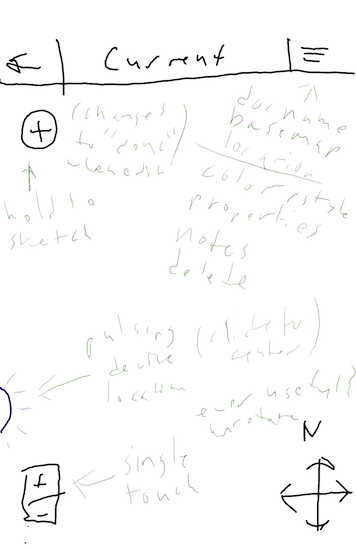 Current
(changes
to "done"
when editing)
doc name
basemap
location
color/style
properties
notes
delete
hold to
sketch
pulsing
device
location
(click to
center)
ever useful?
N
single
touch